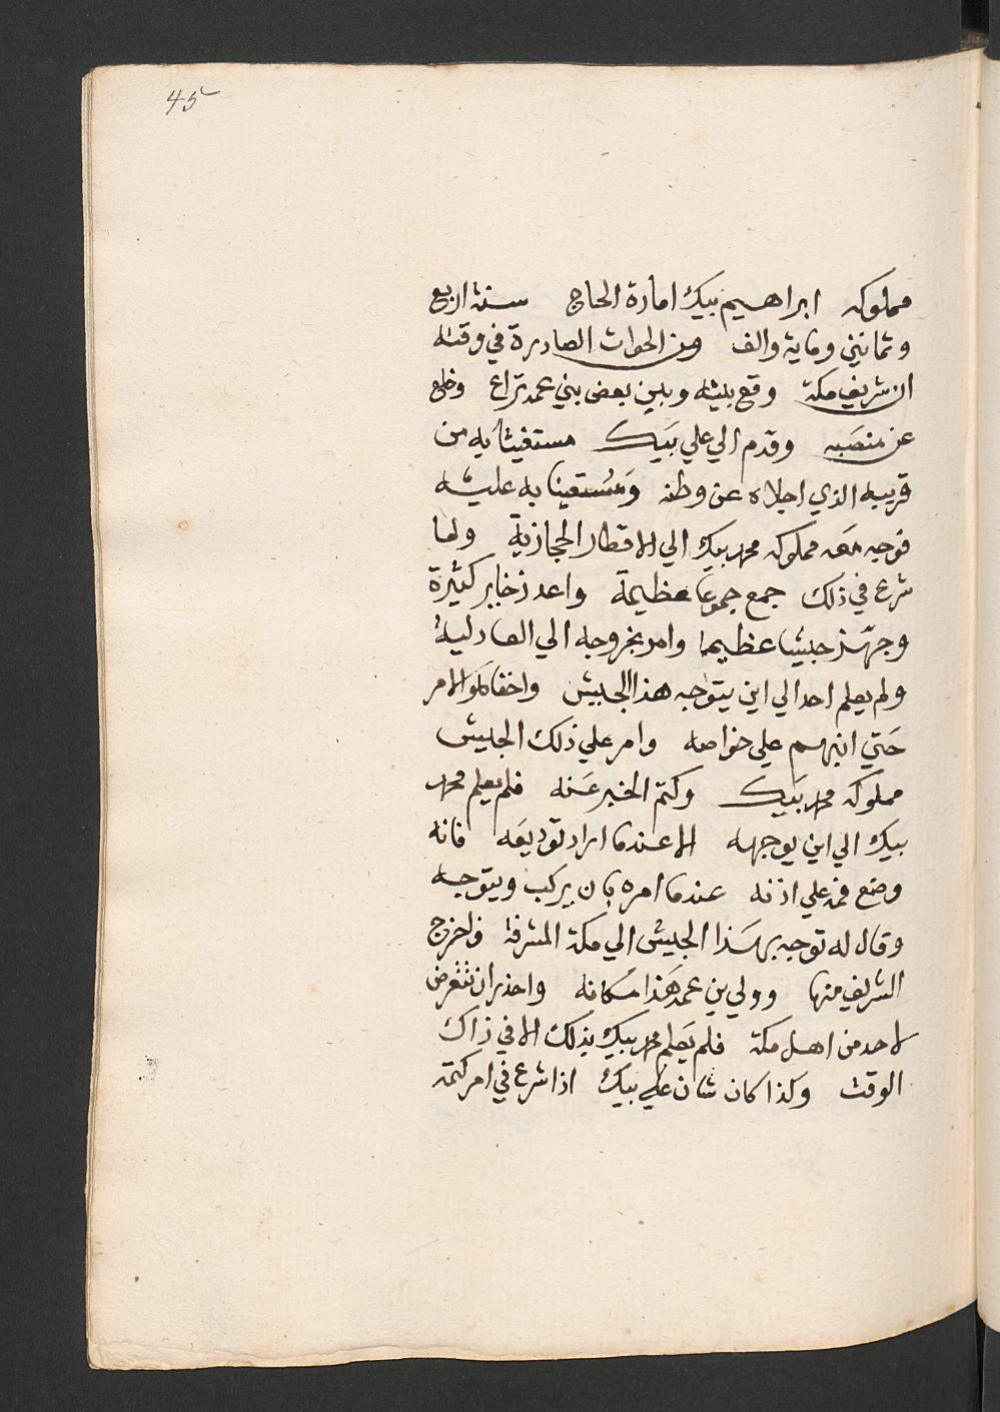 45
مملوكه ابراهيم بيك امارة الحاج سنة اربع
وثمانين وماية والف ومن الحوات الصادرة في وقته
ان شريف مكة وقع بينه وبين بعض بني عمه نزاع وخلع
عن منصبه وقدم الي علي بيك مستغيثا به من
قريبه الذي اجلاه عن وطنه ومستعينا به عليه
فوجه معه مملوكه محمد بيك الي الاقطار الحجازية ولما
شرع في ذلك جمع جموعا عظيمة واعد ذخاير كثيرة
وجهّز جيشا عظيما وامر بخروجه الي العادلية
ولم يعلم احد الي اين يتوجه هذا الجيش واخفا الامر
حتي انبهم علي خواصه وامر علي ذلك الجيش
مملوكه محمد بيك وكتم الخبر عنه فلم يعلم محمد
بيك الي اين يوجهه الا عندما اراد توديعه فانه
وضع فمه علي اذنه عندما امره بان يركب ويتوجه
وقال له توجه بهذا الجيش الي مكة المشرفة واخرج
الشريف منها وولي بن عمه هذا مكانه واحذر ان تتعرض
لاحد من اهل مكة فلم يعلم محمد بيك بذلك الا في ذاك
الوقت وكذا كان شان علي بيك اذا شرع في امر كتمه